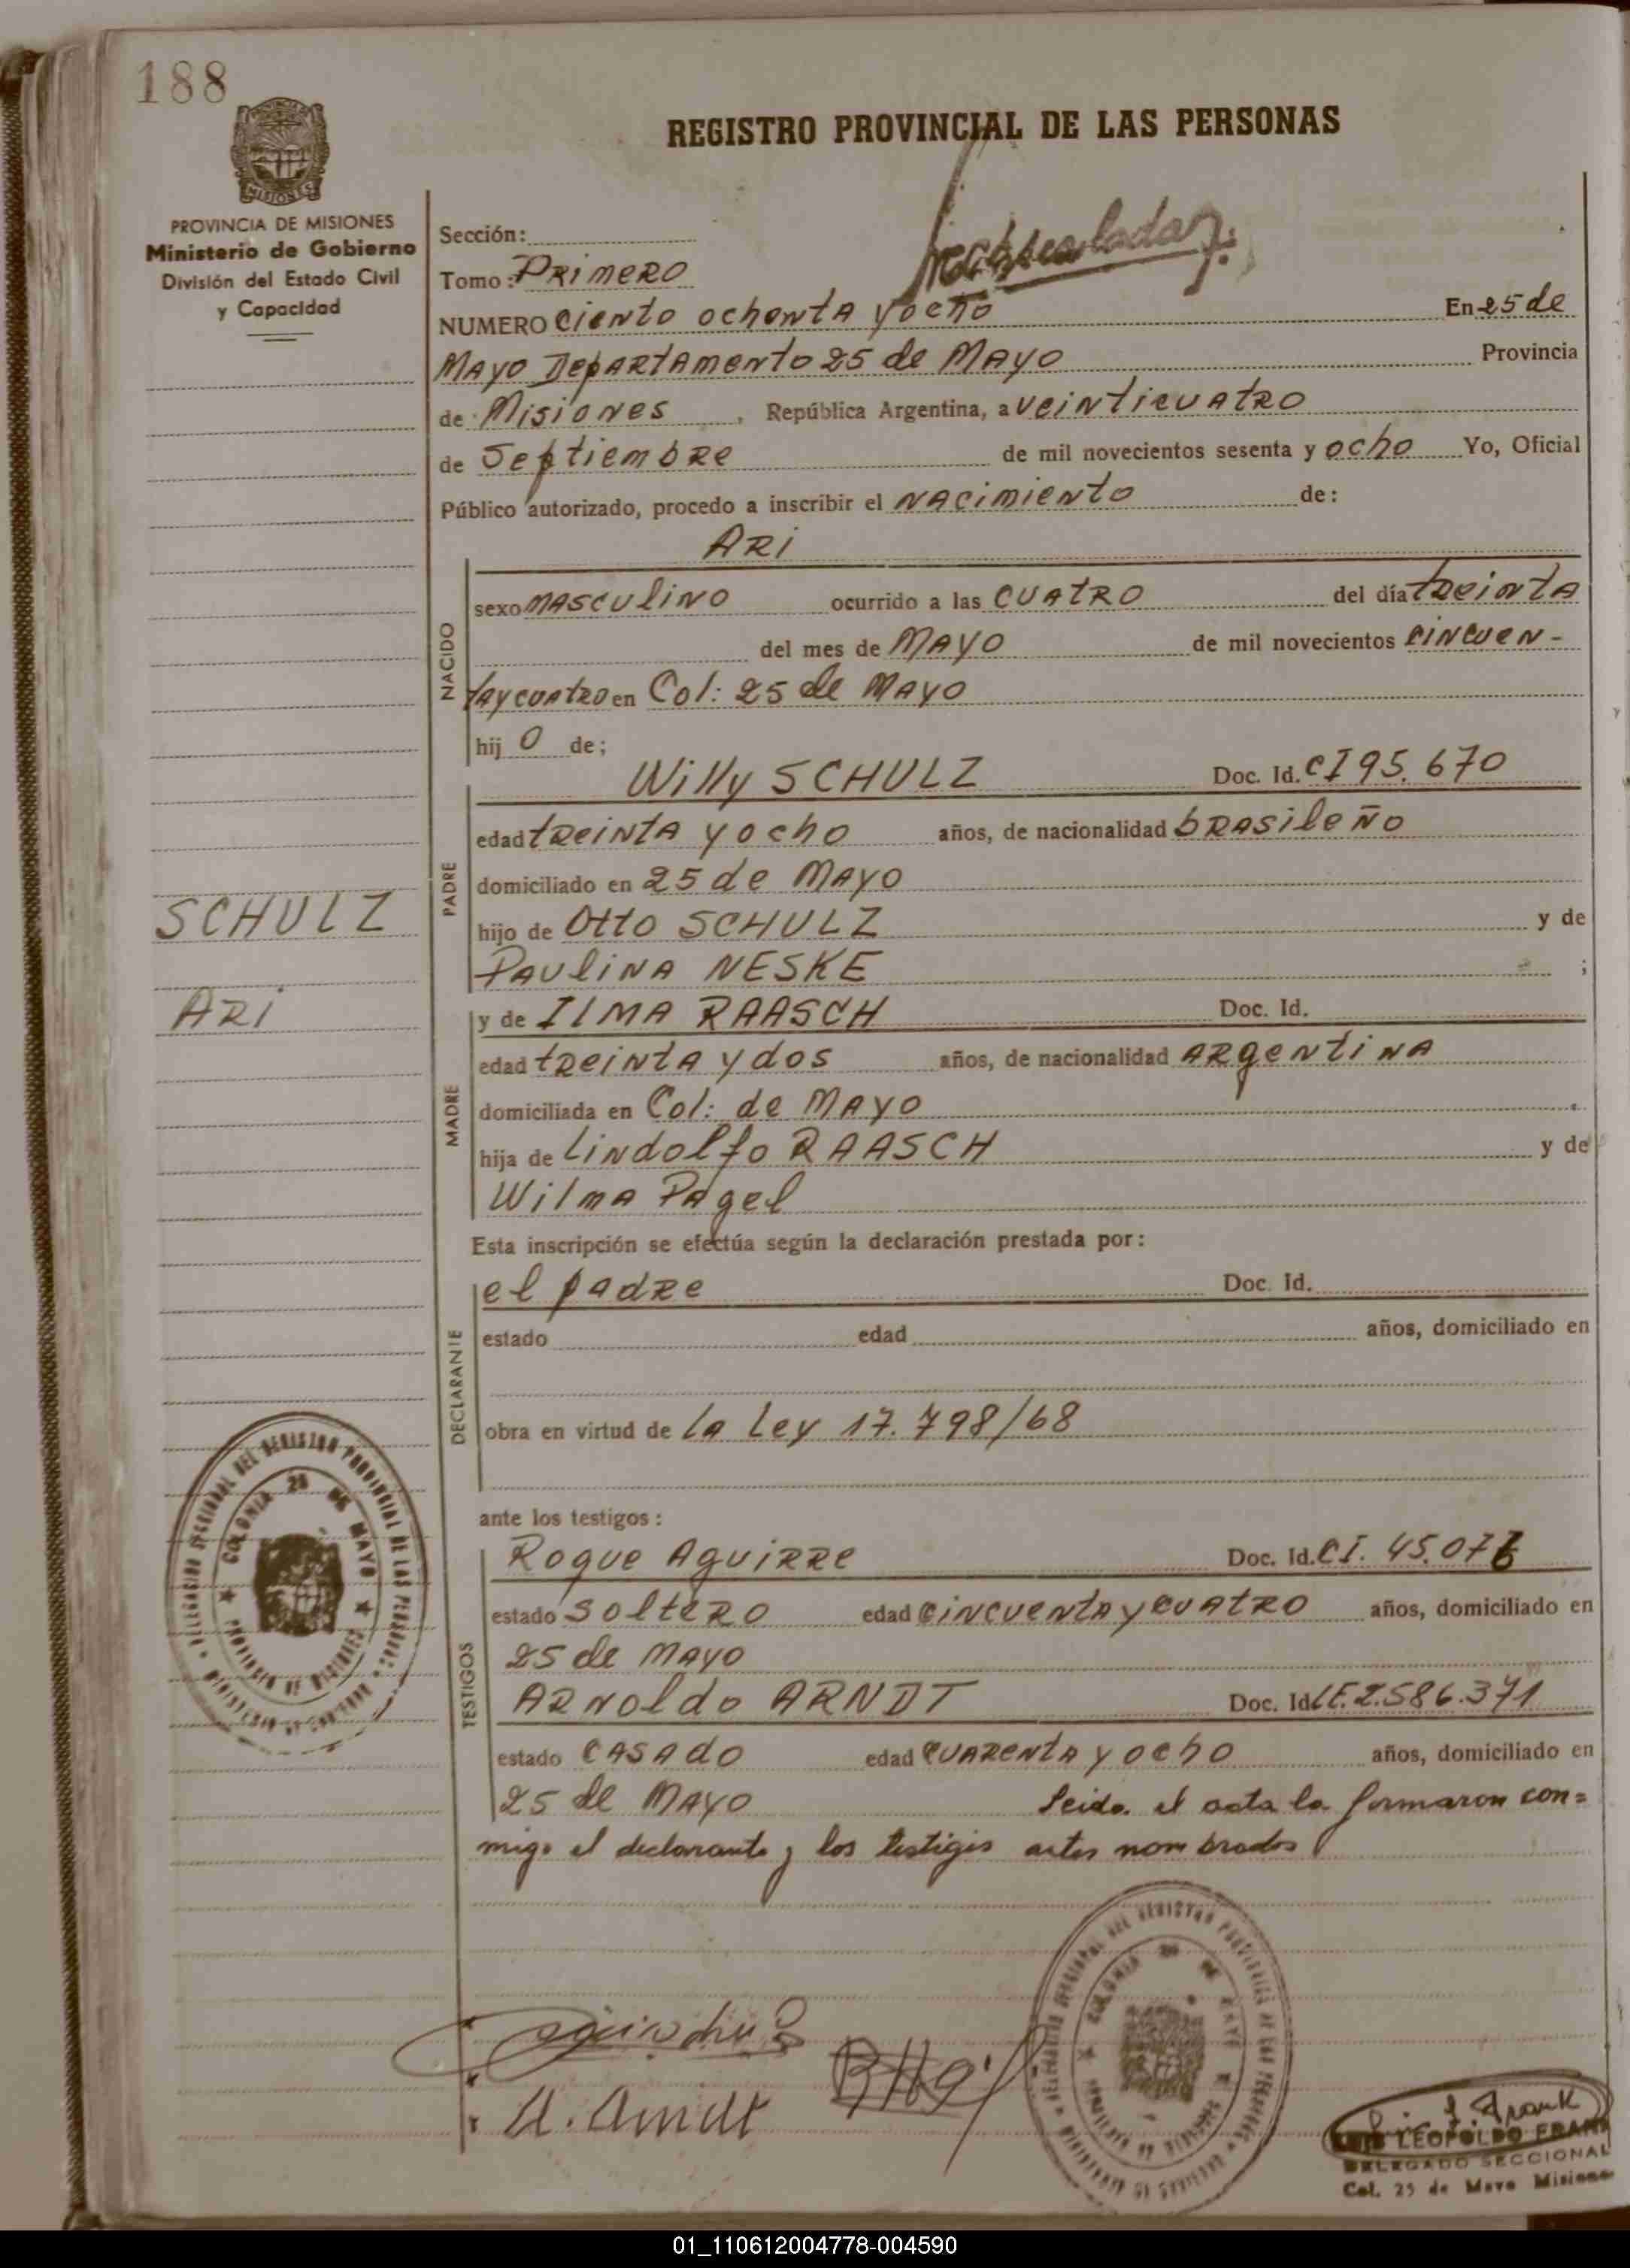 188
REGISTRO PROVINCIAL DE LAS PERSONAS
PROVINCIA DE MISIONES
Ministerio de Gobierno
División del Estado Civil
y Capacidad
Sección:
Tomo: PRIMERO
NUMERO Ciento ochenta y ocho En 25 de
MAYO DepARTAmento 25 de MAYO Provincia
de Misiones, República Argentina, a veinticuatro
de Septiembre de mil novecientos sesenta y ocho Yo, Oficial
Público autorizado, procedo a inscribir el nacimiento de:
ARI
NACIDO
sexo masculino ocurrido a las cuatro del día treinta
del mes de MAYO de mil novecientos cincuen-
tay cuatro en Col: 25 de MAYO
hij o de;
PADRE
Willy SCHULZ Doc. Id. CI 95.670
edad treinta y ocho años, de nacionalidad brasileño
domiciliado en 25 de MAYO
hijo de Otto SCHULZ y de
Paulina NESKE ;
SCHULZ
ARI
MADRE
y de ILMA RAASCH Doc. Id.
edad treinta y dos años, de nacionalidad Argentina
domiciliada en Col: de MAYO
hija de Lindolfo RAASCH y de
Wilma Pagel
Esta inscripción se efectúa según la declaración prestada por:
DECLARANTE
el padre Doc. Id.
estado edad años, domiciliado en
obra en virtud de la Ley 17.798/68
ante los testigos:
TESTIGOS
Roque Aguirre Doc. Id. CI. 45.076
estado soltero edad cincuenta y cuatro años, domiciliado en
25 de MAYO
Arnoldo ARNDT Doc. Id LE.2.586.371
estado casado edad cuarenta y ocho años, domiciliado en
25 de MAYO Leida el acta la firmaron con=
migo el declarante y los testigis antes nombrados
COLONIA 25 DE MAYO
PROVINCIA DE MISIONES
DELEGACION SECCIONAL DEL REGISTRO PROVINCIAL DE LAS PERSONAS
A. Arndt
LUIS LEOPOLDO FRANK
DELEGADO SECCIONAL
Col. 25 de Mayo Misiones
01_110612004778-004590